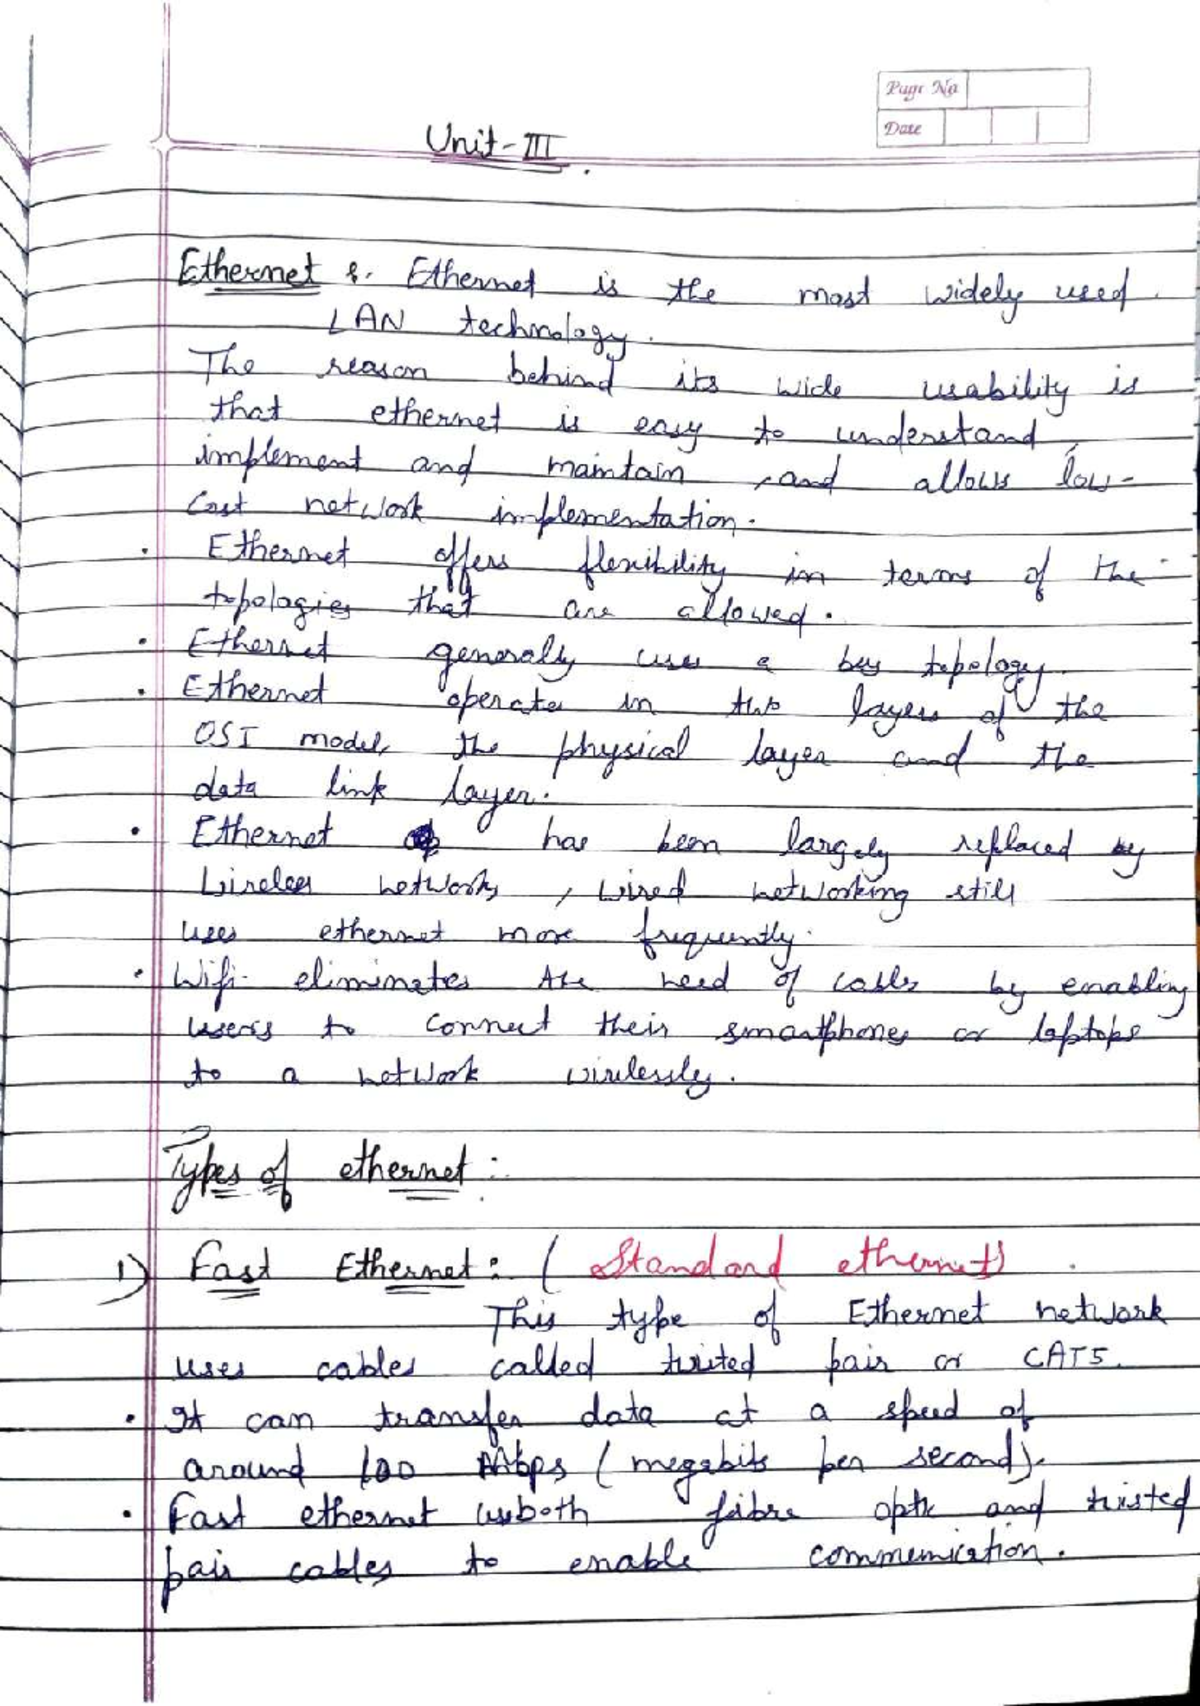 Page No
Date
Unit-III.
Ethernet :. Ethernet is the most widely used.
LAN technology.
The reason behind its wide usability is
that ethernet is easy to understand,
implement and maintain, and allows low-
Cost network implementation.
. Ethernet offers flexibility in terms of the
topologies that are allowed.
. Ethernet generally uses a bus topology.
. Ethernet operates in two layers of the
OSI model, the physical layer and the
data link layer.
• Ethernet has been largely replaced by
wireless networks, wired networking still
uses ethernet more frequently.
• Wifi eliminates the need of cables by enabling
users to connect their smartphones or laptops
to a network wirelessly.
Types of ethernet :.
1) Fast Ethernet : (Standard ethernet) .
This type of Ethernet network
uses cables called twisted pair or CAT5.
• It can transfer data at a speed of
around 100 Mbps (megabits per second).
• Fast ethernet both fibre optic and twisted
pair cables to enable communication.